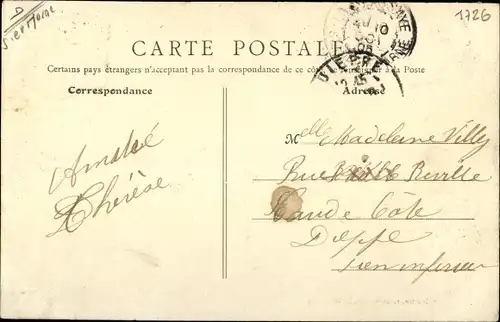 1726
CARTE POSTALE
Certains pays étrangers n'acceptant pas la correspondance de ce côté
à la Poste
Correspondance
Adresse
DIEPPE
Amitié
Thérèse
Melle Madeleine Villy
Rue Reville
Caude Côte
Dieppe